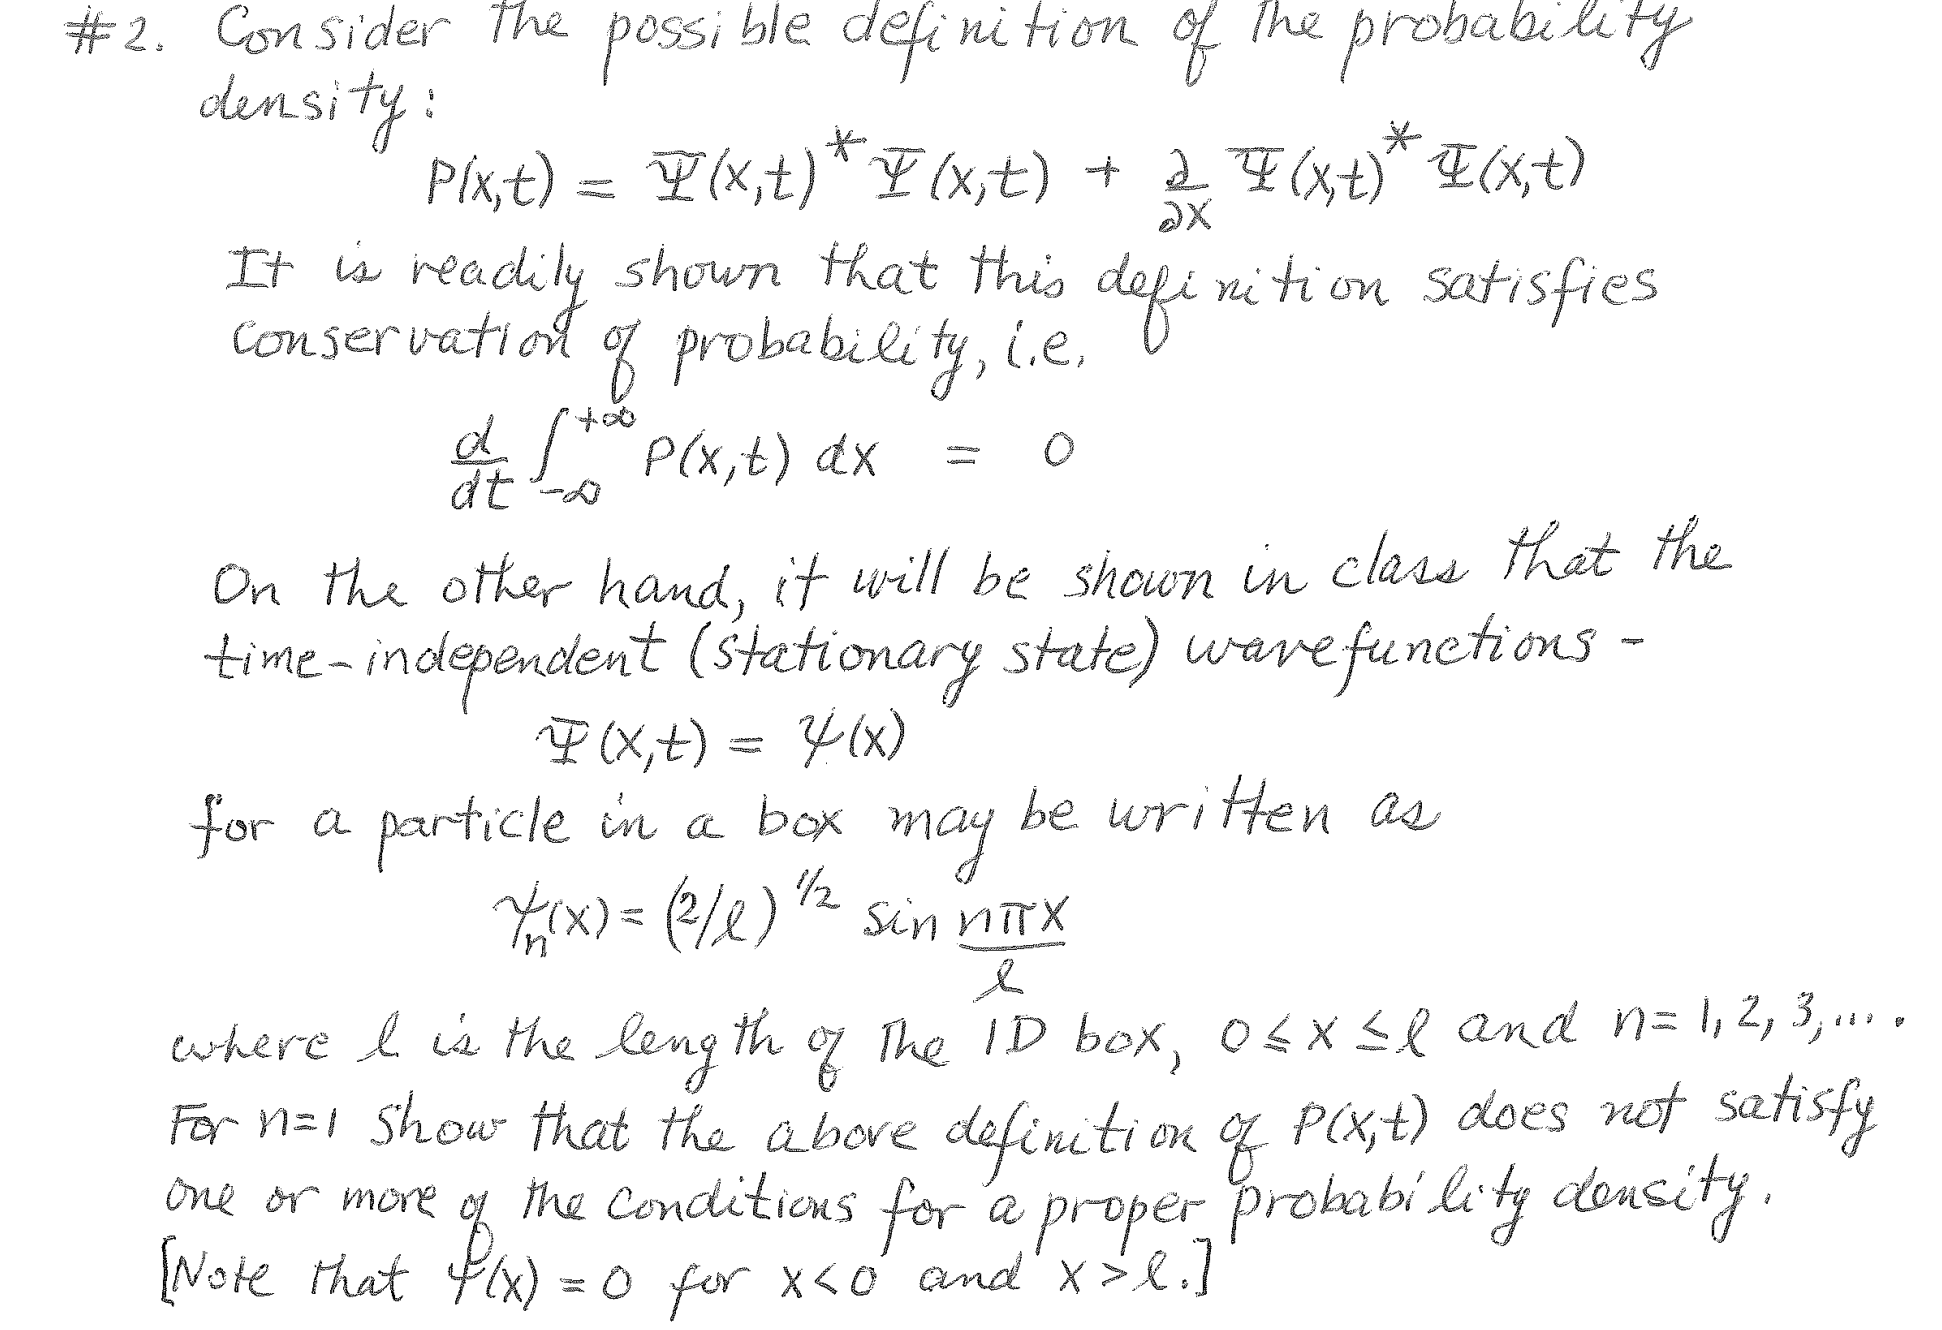 #2. Consider the possible definition of the probability
density:
P(x,t) = Ψ(x,t)* Ψ(x,t) + ∂/∂x Ψ(x,t)* Ψ(x,t)
It is readily shown that this definition satisfies
conservation of probability, i.e.
d/dt ∫_{-∞}^{+∞} P(x,t) dx = 0
On the other hand, it will be shown in class that the
time-independent (stationary state) wavefunctions -
Ψ(x,t) = ψ(x)
for a particle in a box may be written as
ψ_n(x) = (2/l)^{1/2} sin nπx/l
where l is the length of the 1D box, 0 ≤ x ≤ l and n = 1, 2, 3, ... .
For n=1 show that the above definition of P(x,t) does not satisfy
one or more of the conditions for a proper probability density.
[Note that ψ(x) = 0 for x<0 and x>l.]